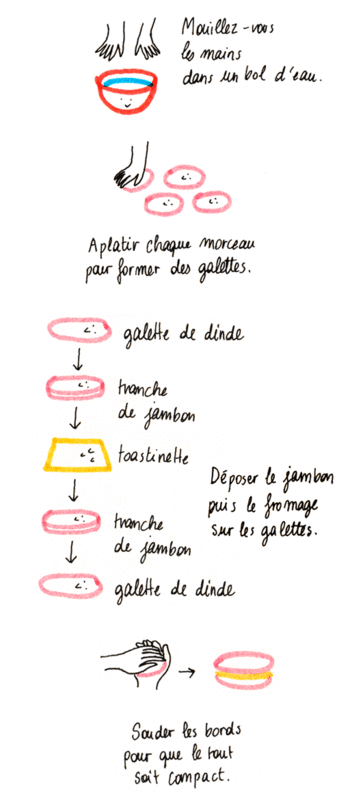 Mouillez-vous
les mains
dans un bol d'eau.
Aplatir chaque morceau
pour former des galettes.
galette de dinde
tranche
de jambon
toastinette
Déposer le jambon
puis le fromage
sur les galettes.
tranche
de jambon
galette de dinde
Souder les bords
pour que le tout
soit compact.